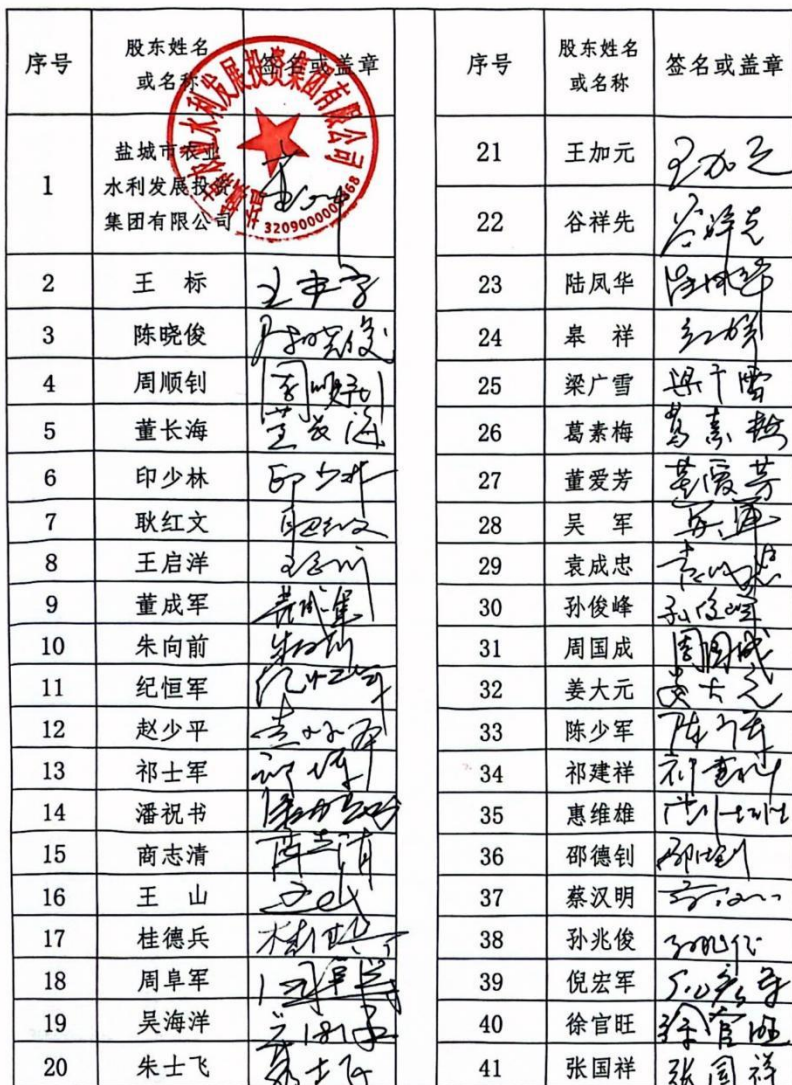 序号 股东姓名或名称 签名或盖章
1 盐城市农业水利发展投资集团有限公司
盐城市农业水利发展投资集团有限公司
2 王 标
3 陈晓俊 陈晓俊
4 周顺钊 周顺钊
5 董长海 董长海
6 印少林 印少林
7 耿红文 耿红文
8 王启洋
9 董成军 董成军
10 朱向前
11 纪恒军
12 赵少平
13 祁士军
14 潘祝书
15 商志清 商志清
16 王 山
17 桂德兵
18 周阜军
19 吴海洋
20 朱士飞
序号 股东姓名或名称 签名或盖章
21 王加元 王加元
22 谷祥先 谷祥先
23 陆凤华 陆凤华
24 皋 祥
25 梁广雪
26 葛素梅 葛素梅
27 董爱芳 董爱芳
28 吴 军 吴军
29 袁成忠 袁成忠
30 孙俊峰 孙俊峰
31 周国成 周国成
32 姜大元 姜大元
33 陈少军 陈少军
34 祁建祥
35 惠维雄
36 邵德钊
37 蔡汉明
38 孙兆俊
39 倪宏军
40 徐官旺 徐官旺
41 张国祥 张国祥